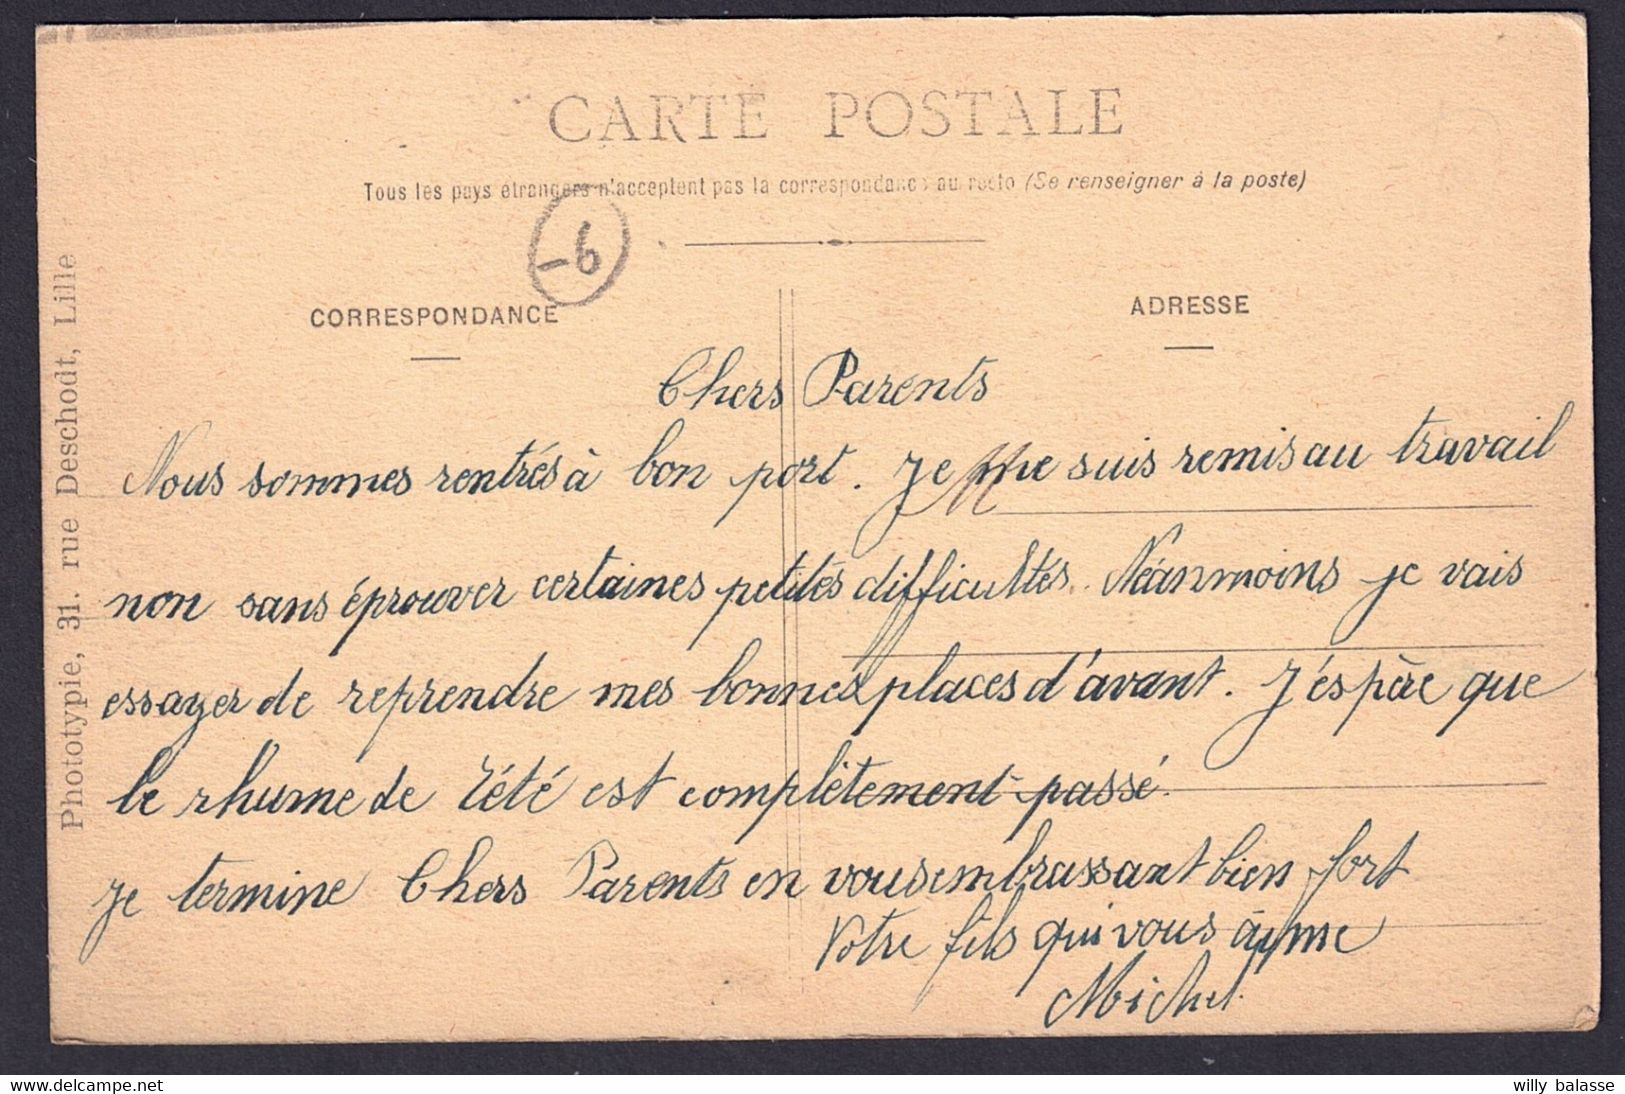 CARTE POSTALE
Tous les pays étrangers n'acceptent pas la correspondance au recto (Se renseigner à la poste)
-6
CORRESPONDANCE
ADRESSE
Phototypie, 31. rue Deschodt, Lille
Chers Parents
Nous sommes rentrés à bon port. Je me suis remis au travail
non sans éprouver certaines petites difficultés. Néanmoins je vais
essayer de reprendre mes bonnes places d'avant. J'éspère que
le rhume de l'été est complètement passé.
Je termine Chers Parents en vous embrassant bien fort
Votre fils qui vous ayme
Michel.
willy balasse